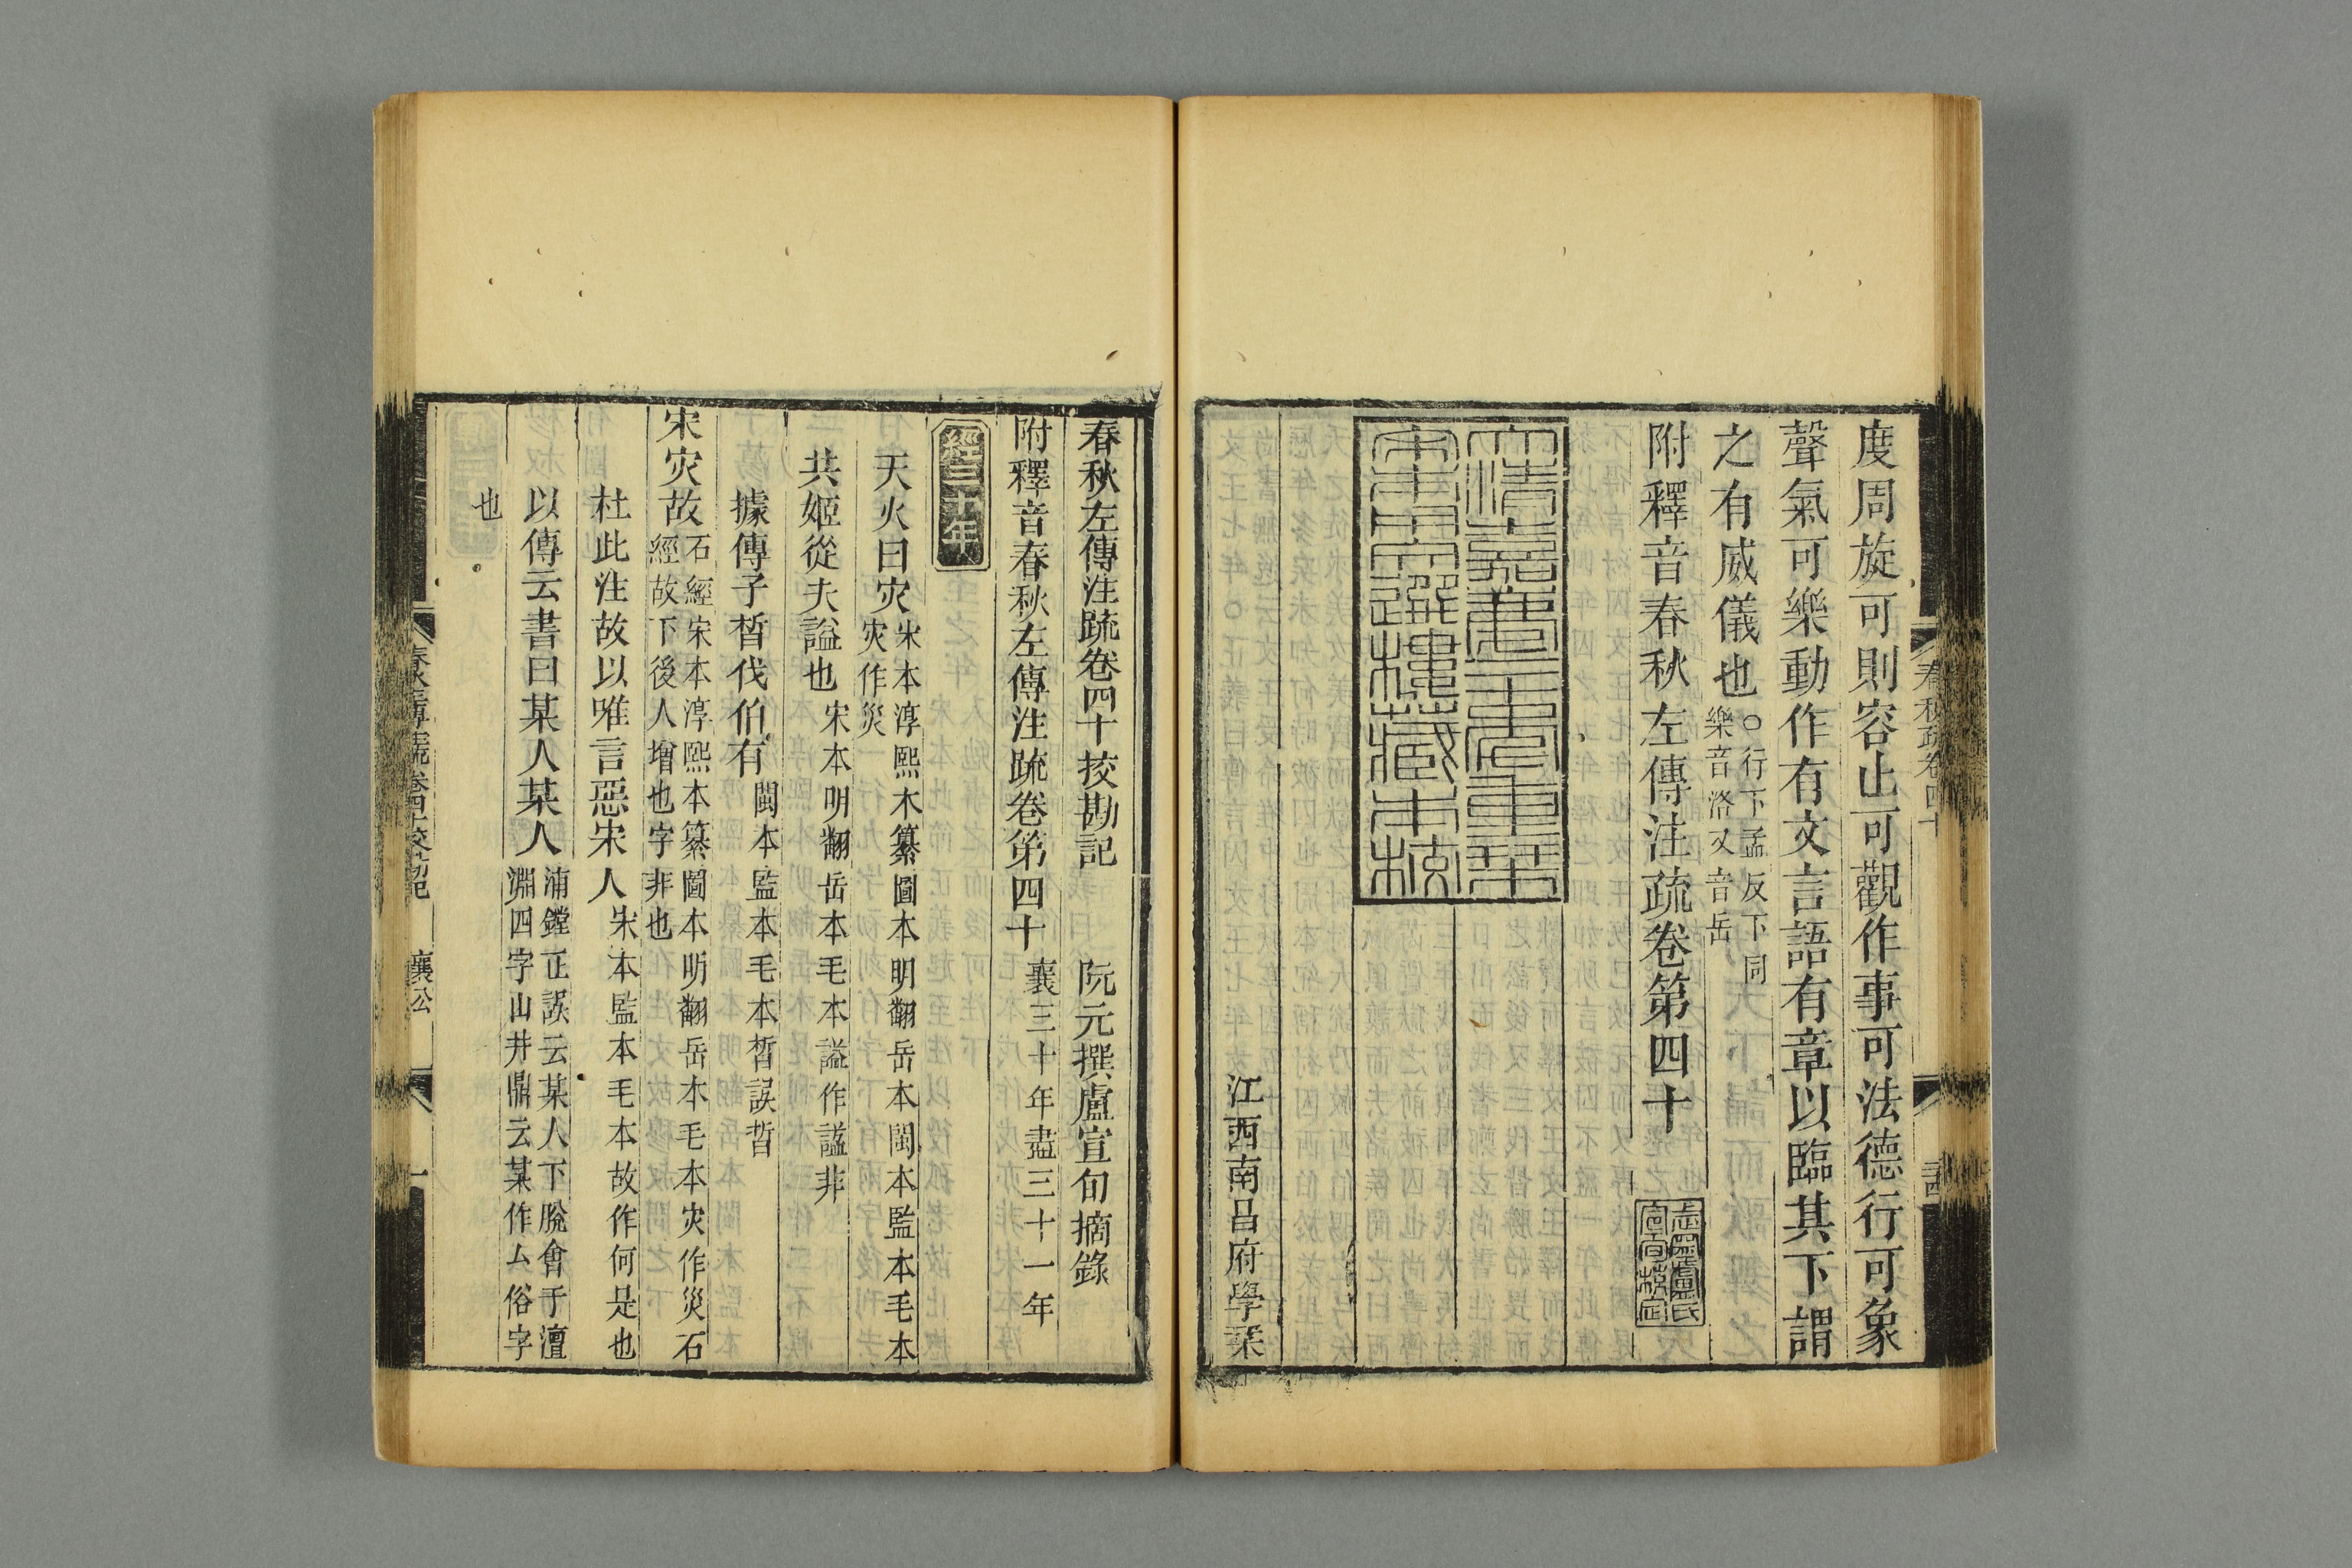 度周旋可則容止可觀作事可法德行可象
聲氣可樂動作有文言語有章以臨其下謂
之有威儀也○行下孟反下同樂音洛又音岳
附釋音春秋左傳注疏卷第四十
大清嘉慶二十年重栞
宋本用文選樓藏本校
江西南昌府學栞
春秋疏卷四十
春秋左傳注疏卷四十挍勘記 阮元撰盧宣旬摘錄
附釋音春秋左傳注疏卷第四十 襄三十年盡三十一年
經三十年
天火曰灾 宋本淳熙本纂圖本明翻岳本閩本監本毛本灾作災
共姬從夫謚也 宋本明翻岳本毛本謚作諡非
據傳子皙伐伯有 閩本監本毛本晳誤晢
宋灾故 石經宋本淳熙本纂圖本明翻岳本毛本灾作災石經故下後人增也字非也
杜此注故以唯言惡宋人 宋本監本毛本故作何是也
以傳云書曰某人某人 浦鏜正誤云某人下脫會于澶淵四字山井鼎云某作厶俗字
也
春秋左傳注疏卷四十挍勘記 襄公 一